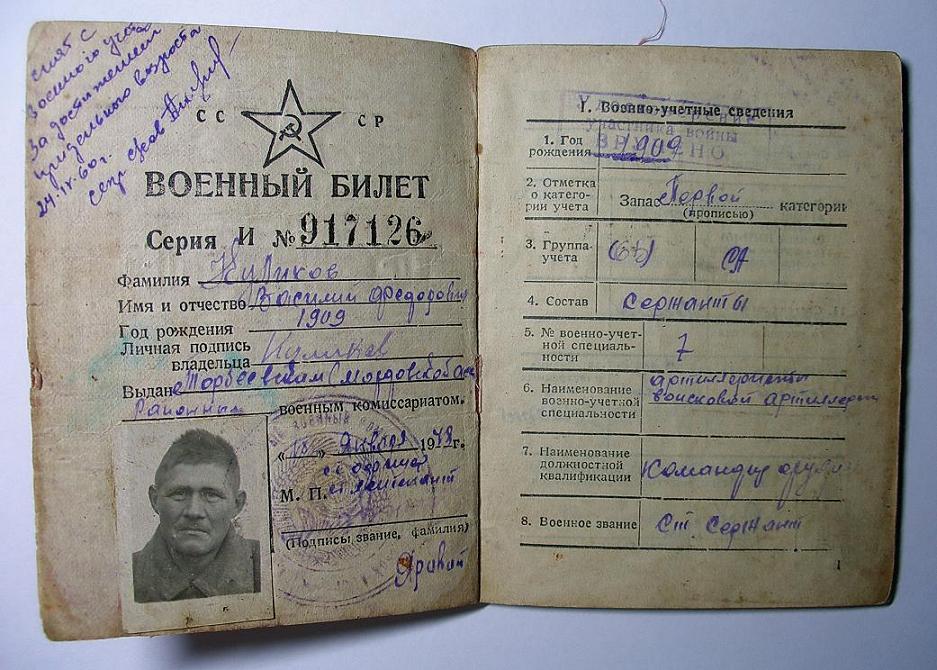 снят с
военного учета
за достижением
предельного возраста
24.IV.60г.
СС СР
ВОЕННЫЙ БИЛЕТ
Серия И № 917126
Фамилия Куликов
Имя и отчество Василий Федорович
Год рождения 1909
Личная подпись
владельца Куликов
Выдан Торбеевским Мордовской
Районным военным комиссариатом.
„18" Января 1948 г.
М. П. ст лейтенант
(Подпись, звание, фамилия)
Удостоверение
участника войны
ВРУЧЕНО
I. Военно-учетные сведения
1. Год
рождения 1909
2. Отметка
о катего-
рии учета
Запас Первой категории
(прописью)
3. Группа
учета
СА
4. Состав сержанты
5. № военно-учет-
ной специаль-
ности
7
6. Наименование
военно-учетной
специальности
артиллеристы
войсковой артиллерии
7. Наименование
должностной
квалификации
Командир орудия
8. Военное звание Ст. Сержант
1